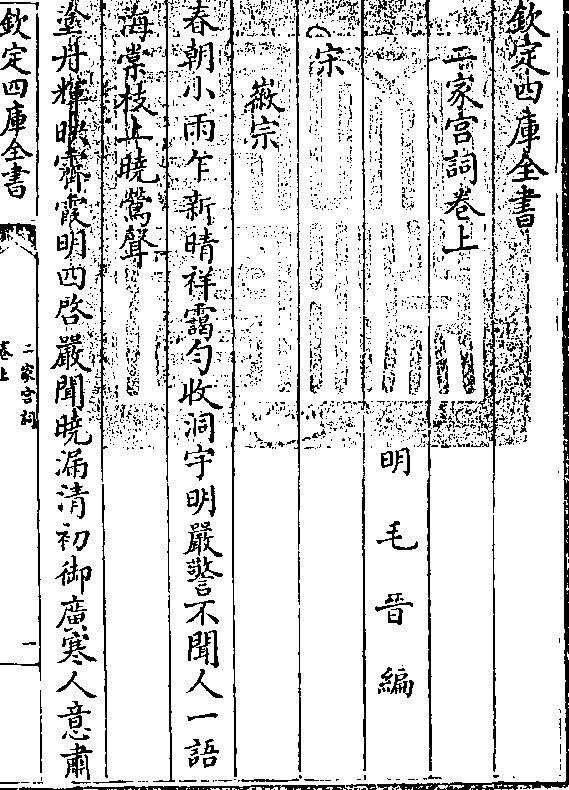 欽定四庫全書
二家宮詞卷上
明毛晉編
宋
徽宗
春朝小雨乍新晴祥靄勻收洞宇明嚴警不聞人一語
海棠枝上曉鶯聲
塗丹輝映霽霞明四啓嚴聞曉漏清初御廣寒人意肅
欽定四庫全書
二家宮詞
卷上
一